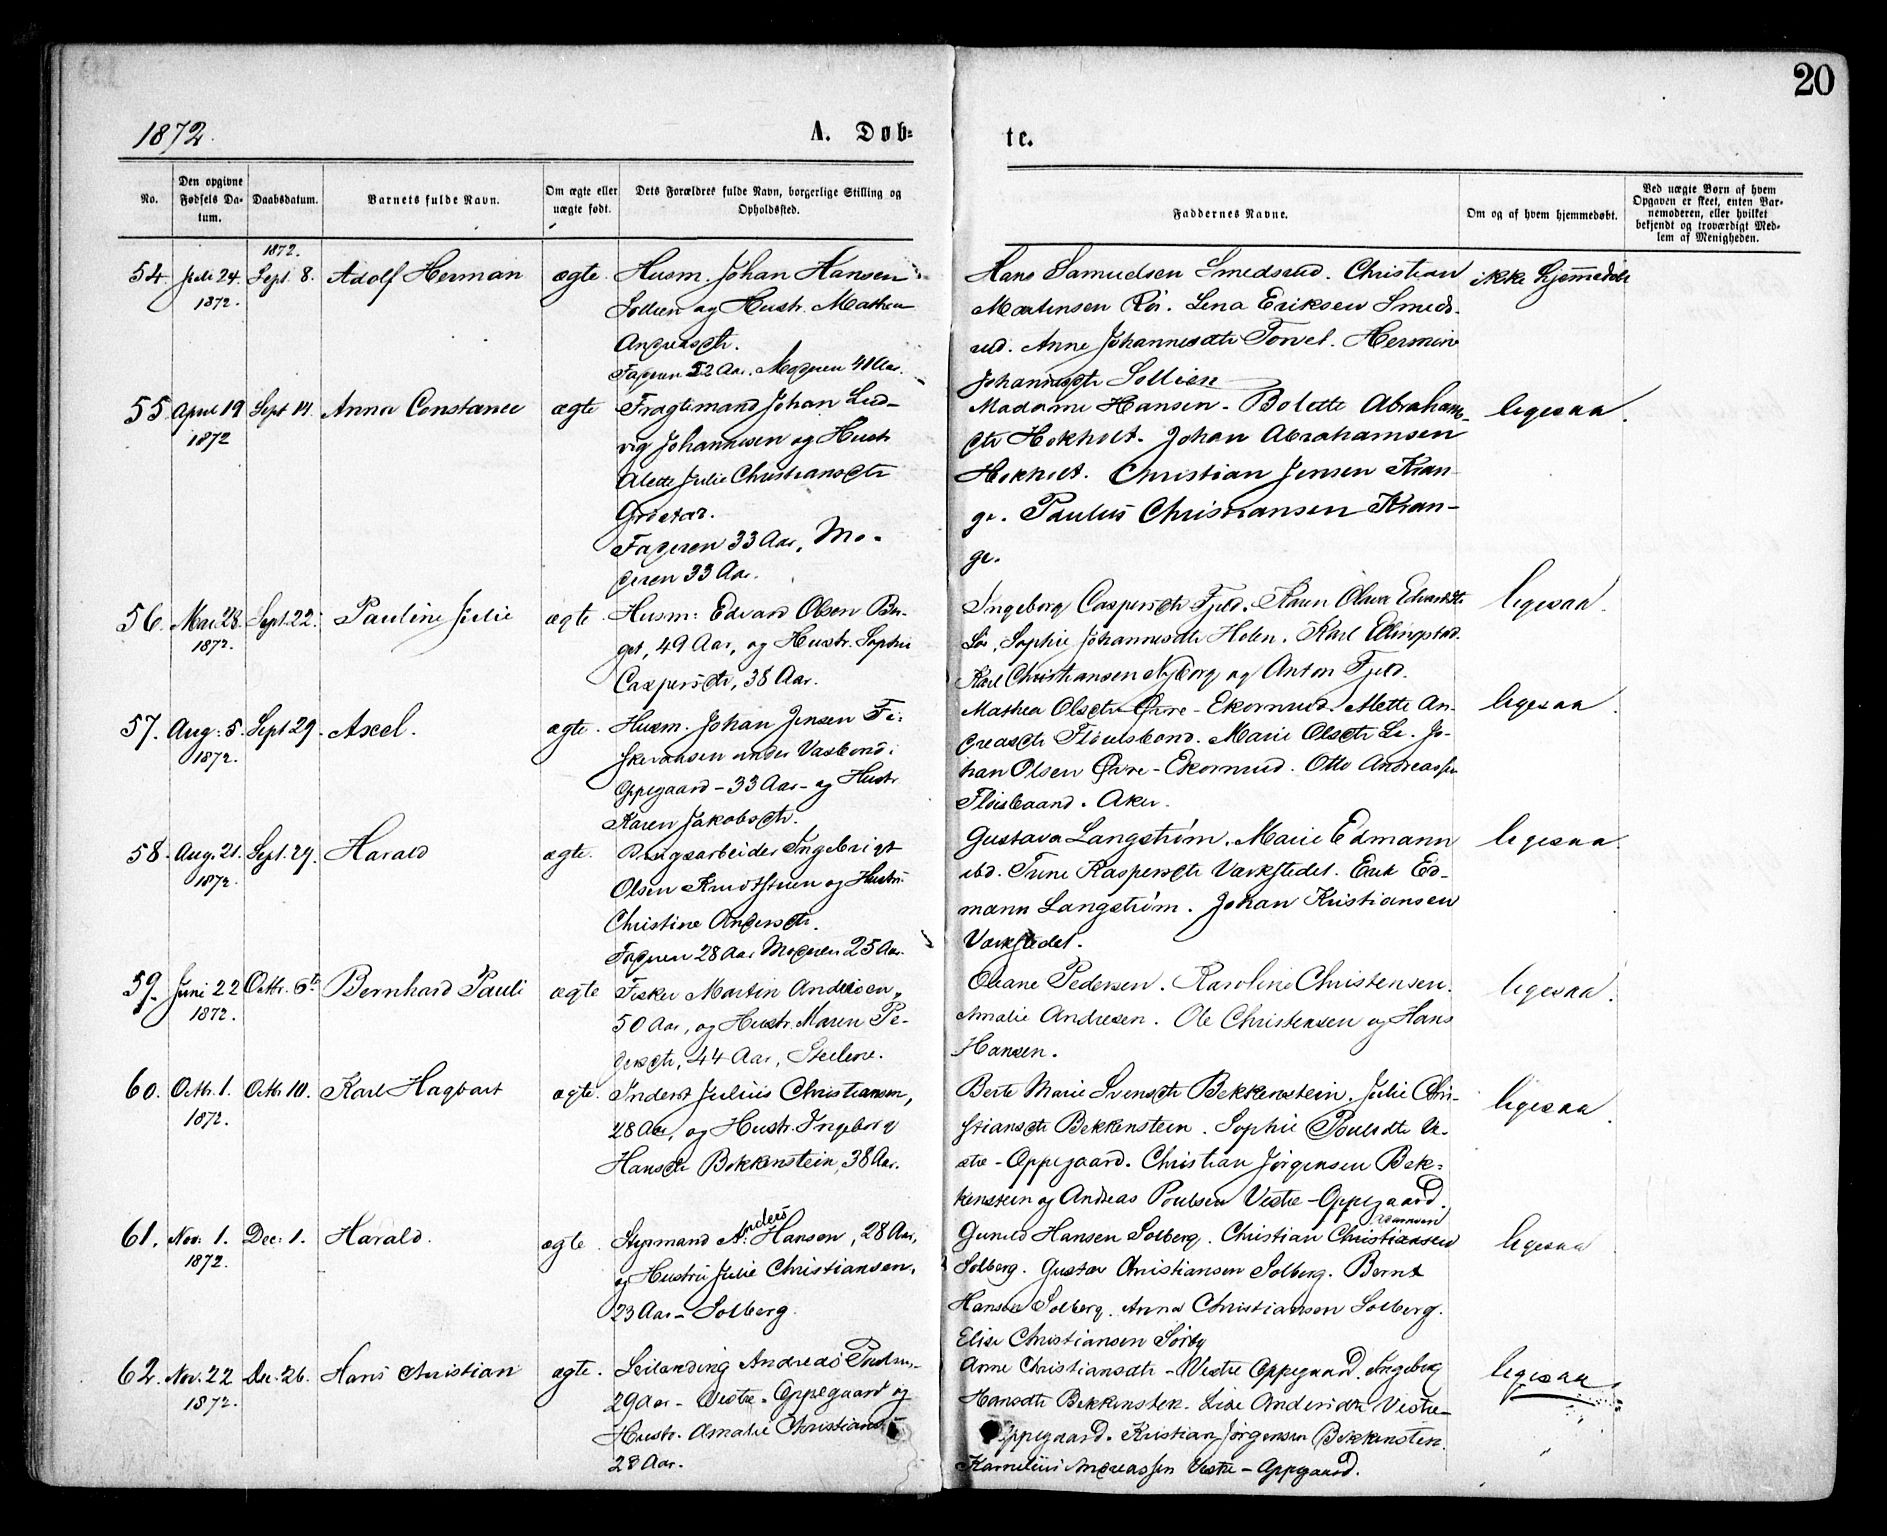 20
1872.
A. Døb-
te.
No.
Den opgivne Fødsels Da-
tum.
Daabsdatum.
Barnets fulde Navn.
Om ægte eller uægte født.
Dets Forældres fulde Navn, borgerlige Stilling og Opholdssted.
Faddernes Navne.
Om og af hvem hjemmedøbt.
Ved uægte Børn af hvem Opgaven er skeet, enten Bar-
nemoderen, eller hvilket bekjendt og troværdigt Med-
lem af Menigheden.
54. Juli 24. 1872. 1872. Sept. 8. Adolf Herman ægte.
Husm. Johan Hansen
Sollien og Hustr. Mathea
Andreasdtr.
Faderen 52 Aar. Moderen 41 Aar.
Hans Samuelsen Smedsrud. Christian
Martinsen Rør. Lena Eriksen Smeds-
rud. Anne Johannesdtr Torvet. Hermine
Johannesdtr Sollien
ikke hjemmedøbt
55. April 19 1872 Sept 14. Anna Constance ægte
Fragtemand Johan Lud-
vig Johannesen og Hustr
Alette Julie Christiansdtr
Grøstad.
Faderen 33 Aar, Mo-
deren 33 Aar.
Madame Hansen - Bolette Abrahams-
dtr Hokholt. Johan Abrahamsen
Hokholt. Christian Jensen Kran-
ge. Paulus Christiansen Kran-
ge.
ligesaa.
56. Mai 28. 1872. Sept. 22. Pauline Julie ægte.
Husm: Edvard Olsen Ber-
get, 49 Aar, og Hustr. Sophie
Caspersdtr, 38 Aar.
Ingeborg Caspersdtr Fjeld. Karen Olava Edvardsdtr
Sophie Johannesdtr Holen. Karl Ellingstad.
Karl Christiansen Nyborg og Anton Fjeld.
ligesaa.
57. Aug: 5. 1872. Sept 29. Axel. ægte.
Husm. Johan Jensen Fi-
skevandsen under Vasbond
Oppegaard - 33 Aar - og Hustr
Karen Jakobsdtr.
Mathea Olsdtr Øvre - Ekornrud. Mette An-
dreasdtr Fløisbond. Marie Olsdtr Li. Jo-
han Olsen Øvre - Ekornrud. Otto Andreassen
Fløisbaand. Aker.
ligesaa.
58. Aug. 21. 1872. Sept. 29. Harald ægte.
Brugsarbeider Ingebrigt
Olsen Knudtstuen og Hustr.
Christine Andersdtr.
Faderen 28 Aar Moderen 25 Aar.
Gustava Langstrøm. Marie Edmann
ibd. Trine Kaspersdtr Værkstedet. Erik Ed-
mann Langstrøm. Johan Kristiansen
Værkstedet.
ligesaa.
59. Juni 22 1872. Octbr. 6te Bernhard Pauli ægte
Fisker Martin Andersen,
50 Aar, og Hustr. Maren Pe-
dersdtr, 44 Aar, Stubljan.
Oleane Pedersen. Karoline Christensen.
Amalie Andresen. Ole Christensen og Hans
Hansen.
ligesaa.
60. Octbr. 1. 1872. Octbr 10. Karl Hagbart ægte.
Inderst Julius Christiansen,
28 Aar, og Hustr. Ingeborg
Hansdtr Bekkenstein, 38 Aar.
Berte Marie Svensdtr Bekkenstein. Julie Chri-
stiansdtr Bekkenstein. Sophie Poulsdtr Ve-
stre - Oppegaard. Christian Jørgensen Bek-
kenstein og Andreas Poulsen Vestre - Oppegaard.
ligesaa.
61. Nov: 1. 1872. Dec: 1. Harald. ægte.
Styrmand A: Anders Hanson, 28 Aar,
og Hustru Julie Christiansen,
23 Aar - Solberg.
Gunild Hansen Solberg. Christian Christiansen
Solberg. Gustav Christiansen Solberg. Bernt
Hansen Solberg. Anna Christiansen Solberg.
Elise Christiansen Sørby
ligesaa
62. Nov. 22 1872. Dec. 26. Hans Christian ægte.
Leilænding Andreas
29 Aar - Vestre - Oppegaard og
Hustr. Amalie Christians
28 Aar.
Anne Christiansdtr - Vestre Oppegaard. Ingeborg
Hansdtr Bekkensten. Lise Andersdtr Vestre -
Oppegaard. Kristian Jørgensen Bekkensten.
Kornelius Andreassen Vestre - Oppegaard.
ligesaa.